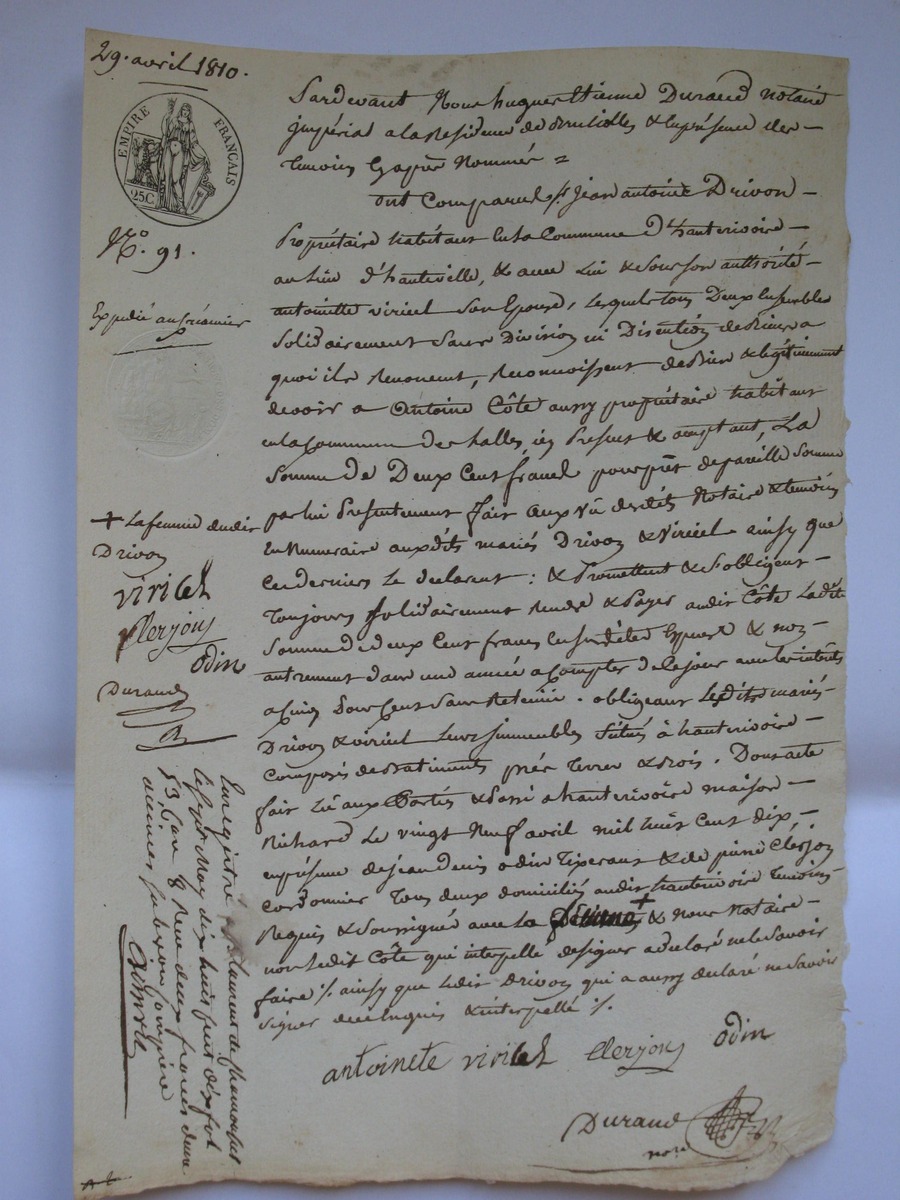 29. avril 1810.
EMPIRE FRANÇAIS
25C
N.º 91.
Expedié au créancier
+ La femme dudit
Drivon
viriCel
Clerjon
odin
Durand
Pardevant Nous hugues Etienne Durand notaire
jmpérial a la Residence de Brullioles & en presence des
temoins Cy après Nommés =
ont Comparu Sr jean antoine Drivon
Propriétaire habitant en la Commune D'hauterivoire
au lieu d'hauteville, & avec Lui & sous son authorité
antoinette viricel son Epouse, Lesquels tous Deux Ensembles
Solidairement Sans Division ni Discution de Biens a
quoi ils Renoncent, Reconnoissent devoir & légitimement
devoir a Antoine Côte aussy propriétaire habitant
en la Commune des halles, icy Present & acceptant, La
Somme de Deux Cent francs pour prêt de pareille Somme
par lui Presentement fait aux vû desdits Notaire & temoins
En Numeraire auxdits mariés Drivon & Viricel ainsy que
Ces derniers le declarent : & Promettent & S'obligent
Toujours Solidairement Rendre & Payer audit Côte Ladite
Somme de deux Cent francs en Especes & non
autrement dans une année a Compter de Ce jour avec les intérêts
a Cinq pour Cent Sans Retenue . obligeant Lesdits mariés
Drivon & viricel Leurs jmmeubles Situés à hauterivoire
Composés de Batiments prés terres & Bois . Dont acte
fait Lu aux Parties & Passé a hauterivoire maison
Richard Le vingt Neuf avril mil huit Cent dix,
en presence de jean Denis odin Tixerant & de pierre Clerjon
Cordonnier Tous deux domiciliés audit hauterivoire temoins
Requis & Soussignés avec La + & nous Notaire
non Ledit Côte qui interpellé de signer a declaré ne le Savoir
faire %. ainsy que Ledit Drivon qui a aussy declaré ne Savoir
Signer de ce Enquis & interpellé %.
antoinete viriCel Clerjon odin
Durand
nore
Enregistré a St Laurent de Chamousset
Le Sept May dix huit Cent dix fol
53, Case 8 Reçu deux francs